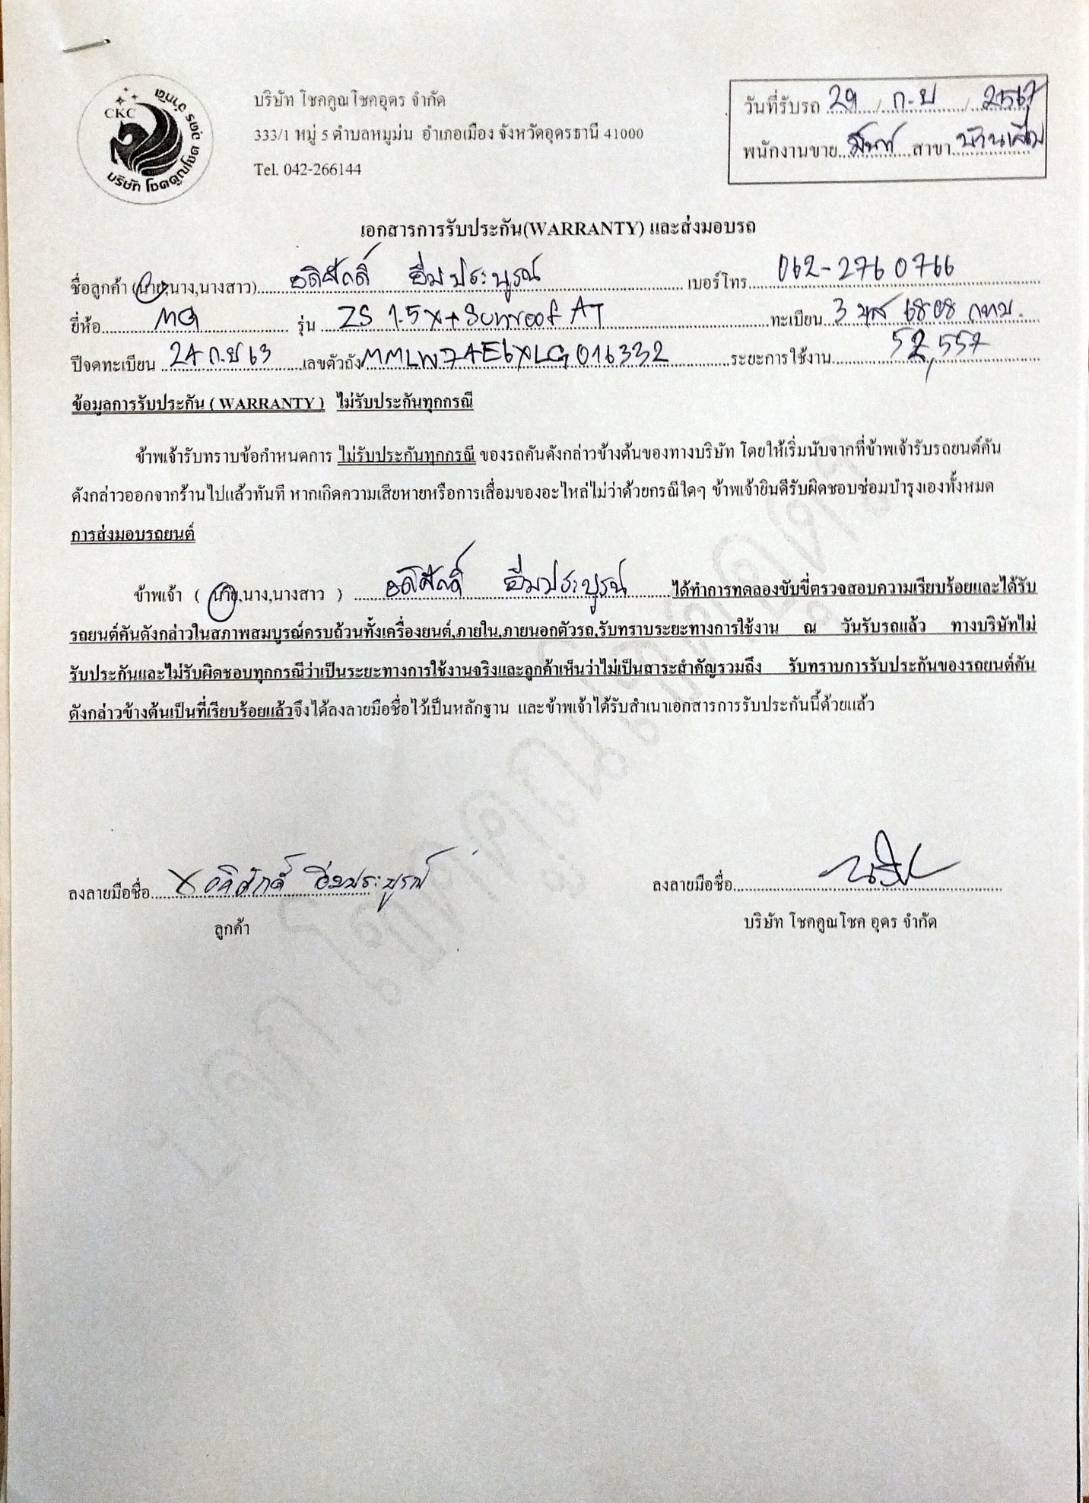 CKC
บริษัท โชคคูณโชค อุดร จำกัด
บริษัท โชคคูณ โชคอุดร จำกัด
333/1 หมู่ 5 ตำบลหมูม่น อำเภอเมือง จังหวัดอุดรธานี 41000
Tel. 042-266144
วันที่รับรถ 29 / ก.ย / 2567
พนักงานขาย.....สาขา
เอกสารการรับประกัน(WARRANTY) และส่งมอบรถ
ชื่อลูกค้า (นาย,นาง,นางสาว) อดิศักดิ์ อิ่มประบูรณ์ เบอร์โทร 062-276 0766
ยี่ห้อ MG รุ่น ZS 1.5 X+ Sunroof AT ทะเบียน 3 6808 กทม.
ปีจดทะเบียน 24 ก.ย 63 เลขตัวถัง MMLW7AE6XLG016332 ระยะการใช้งาน 52,557
ข้อมูลการรับประกัน ( WARRANTY ) ไม่รับประกันทุกกรณี
ข้าพเจ้ารับทราบข้อกำหนดการ ไม่รับประกันทุกกรณี ของรถคันดังกล่าวข้างต้นของทางบริษัท โดยให้เริ่มนับจากที่ข้าพเจ้ารับรถยนต์คัน
ดังกล่าวออกจากร้านไปแล้วทันที หากเกิดความเสียหายหรือการเสื่อมของอะไหล่ไม่ว่าด้วยกรณีใดๆ ข้าพเจ้ายินดีรับผิดชอบซ่อมบำรุงเองทั้งหมด
การส่งมอบรถยนต์
ข้าพเจ้า ( นาย,นาง,นางสาว ) อดิศักดิ์ อิ่มประบูรณ์ ได้ทำการทดลองขับขี่ตรวจสอบความเรียบร้อยและได้รับ
รถยนต์คันดังกล่าวในสภาพสมบูรณ์ครบถ้วนทั้งเครื่องยนต์,ภายใน,ภายนอกตัวรถ,รับทราบระยะทางการใช้งาน ณ วันรับรถแล้ว ทางบริษัทไม่
รับประกันและไม่รับผิดชอบทุกกรณีว่าเป็นระยะทางการใช้งานจริงและลูกค้าเห็นว่าไม่เป็นสาระสำคัญรวมถึง รับทราบการรับประกันของรถยนต์คัน
ดังกล่าวข้างต้นเป็นที่เรียบร้อยแล้วจึงได้ลงลายมือชื่อไว้เป็นหลักฐาน และข้าพเจ้าได้รับสำเนาเอกสารการรับประกันนี้ด้วยแล้ว
บจก.โชคคูณโชคอุดร
ลงลายมือชื่อ X อดิศักดิ์ อิ่มประบูรณ์ ลงลายมือชื่อ
ลูกค้า บริษัท โชคคูณ โชค อุดร จำกัด